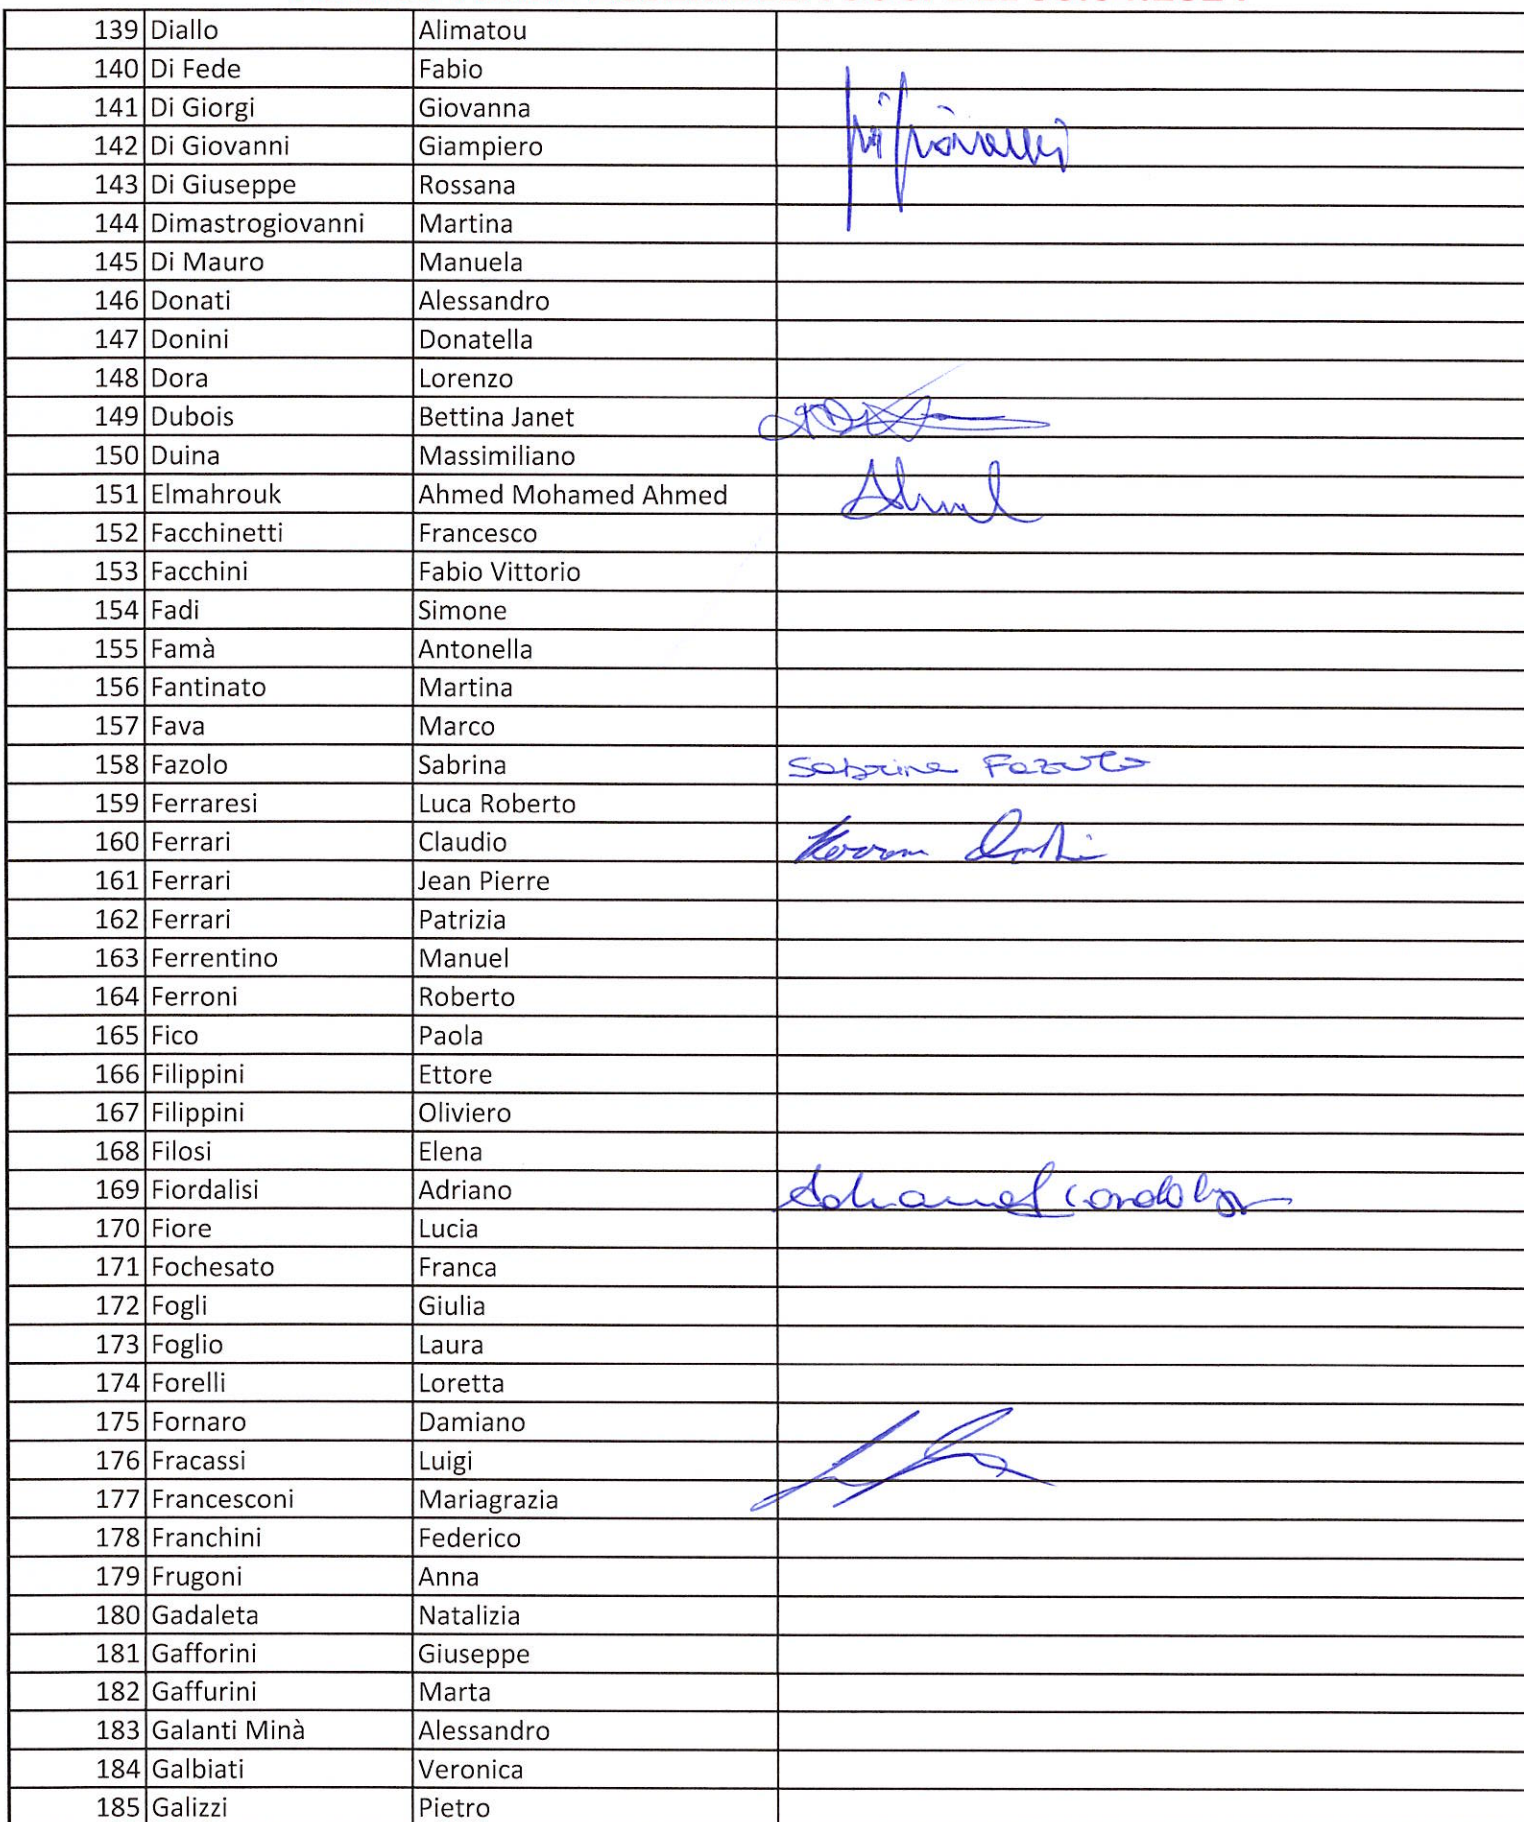 139 Diallo Alimatou
140 Di Fede Fabio
141 Di Giorgi Giovanna
142 Di Giovanni Giampiero
143 Di Giuseppe Rossana
144 Dimastrogiovanni Martina
145 Di Mauro Manuela
146 Donati Alessandro
147 Donini Donatella
148 Dora Lorenzo
149 Dubois Bettina Janet
150 Duina Massimiliano
151 Elmahrouk Ahmed Mohamed Ahmed
152 Facchinetti Francesco
153 Facchini Fabio Vittorio
154 Fadi Simone
155 Famà Antonella
156 Fantinato Martina
157 Fava Marco
158 Fazolo Sabrina Sabrina Fazolo
159 Ferraresi Luca Roberto
160 Ferrari Claudio
161 Ferrari Jean Pierre
162 Ferrari Patrizia
163 Ferrentino Manuel
164 Ferroni Roberto
165 Fico Paola
166 Filippini Ettore
167 Filippini Oliviero
168 Filosi Elena
169 Fiordalisi Adriano
170 Fiore Lucia
171 Fochesato Franca
172 Fogli Giulia
173 Foglio Laura
174 Forelli Loretta
175 Fornaro Damiano
176 Fracassi Luigi
177 Francesconi Mariagrazia
178 Franchini Federico
179 Frugoni Anna
180 Gadaleta Natalizia
181 Gafforini Giuseppe
182 Gaffurini Marta
183 Galanti Minà Alessandro
184 Galbiati Veronica
185 Galizzi Pietro